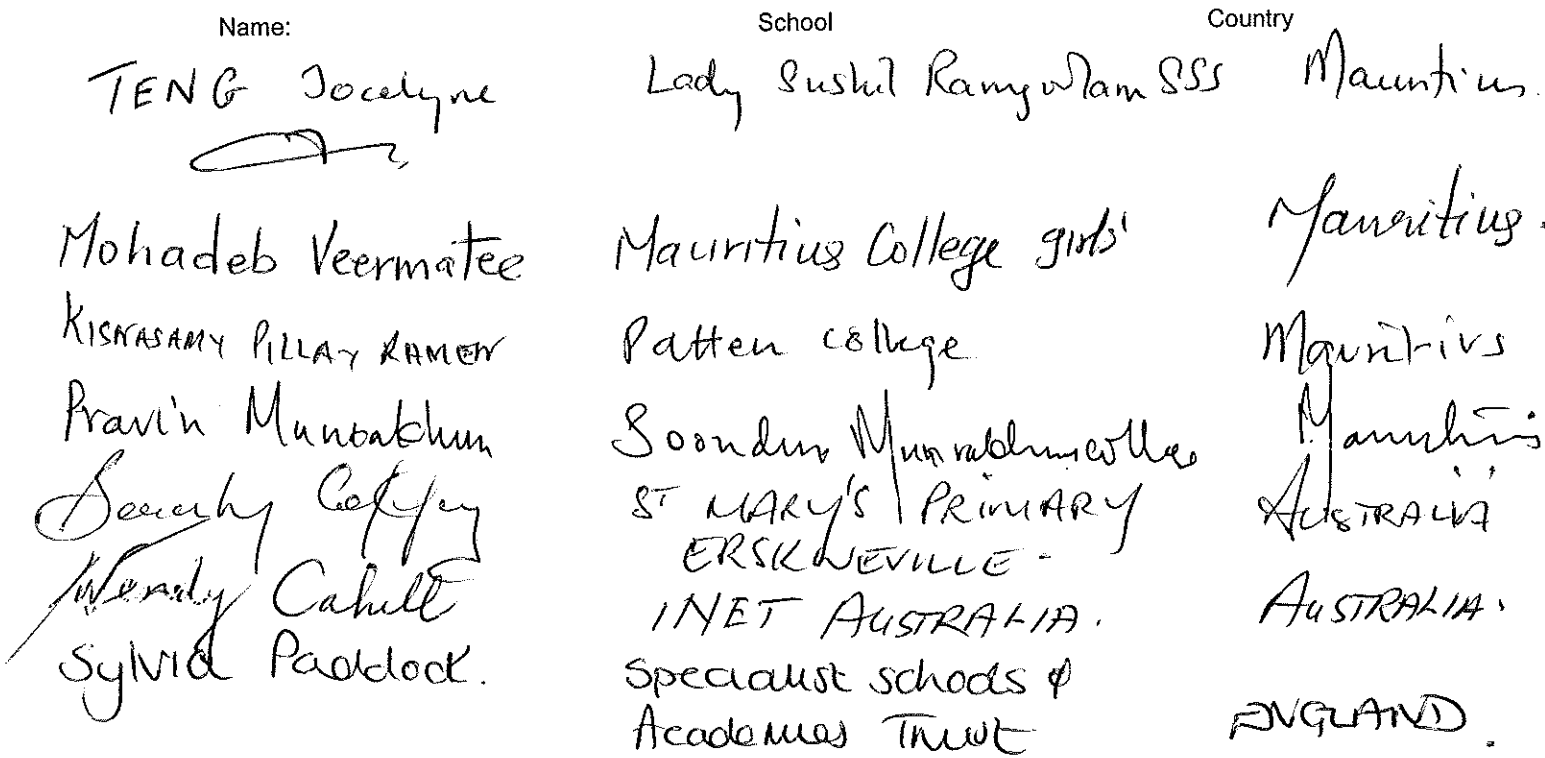 Name: School Country
TENG Jocelyne Lady Sushil Ramgoolam SSS Mauritius.
Mohadeb Veermatee Mauritius College girls' Mauritius.
KISNASAMY PILLAY RAMEN Patten college Mauritius
Pravin Munbakhun Soondur Munrakhun college Mauritius
Coffey ST MARY'S PRIMARY AUSTRALIA
ERSKINEVILLE -
Wendy Cahill INET AUSTRALIA. AUSTRALIA.
Sylvia Paddock. Specialist schools &
Academies Trust ENGLAND.